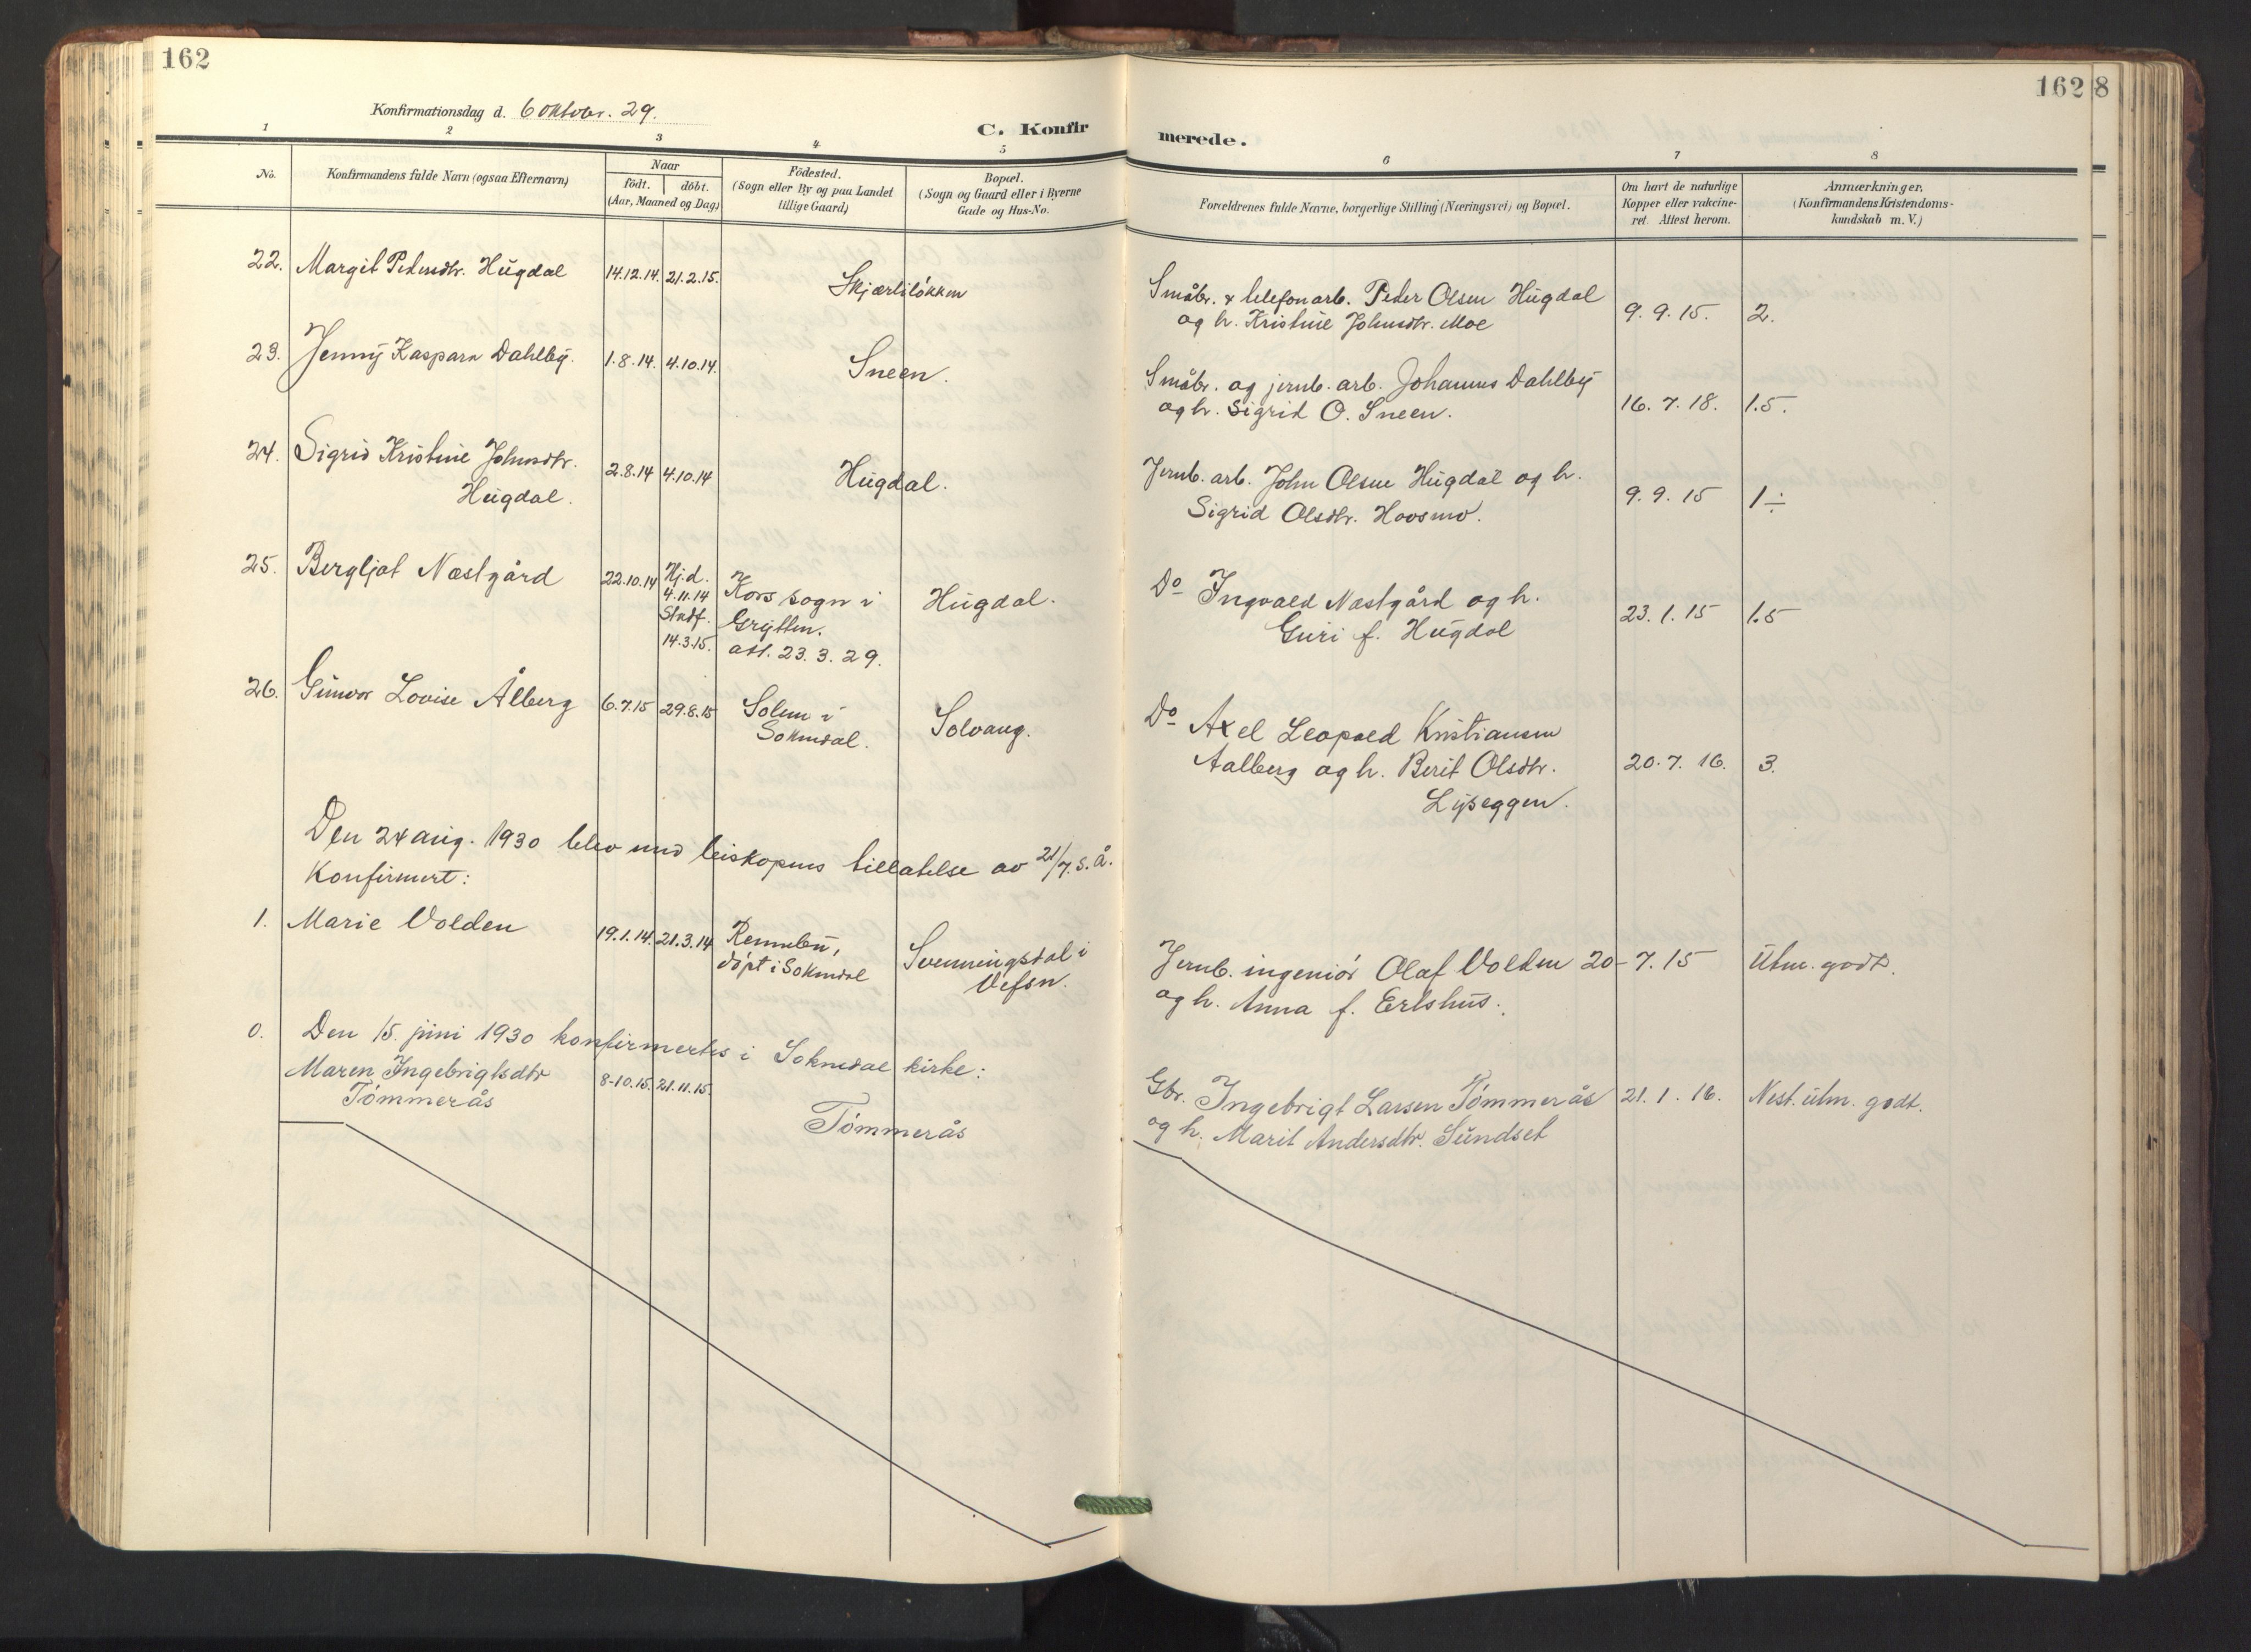 162
162
8
Konfirmationsdag d. 6 oktober. 29.
C. Konfirmerede.
1 2 3 4 5 6 7 8
No.
Konfirmandens fulde Navn (ogsaa Efternavn)
Naar
födt. döbt.
(Aar, Maaned og Dag)
Födested.
(Sogn eller By og paa Landet
tillige Gaard)
Bopæl.
(Sogn og Gaard eller i Byerne
Gade og Hus-No.
Forældrenes fulde Navne, borgerlige Stilling (Næringsvei) og Bopæl.
Om havt de naturlige
Kopper eller vakcine-
ret. Attest herom.
Anmærkninger.
(Konfirmandens Kristendoms-
kundskab m. V.)
22. Margit Pedersdtr. Hugdal 14.12.14. 21.2.15. Skjærlilökken Småbr. & telefonarb. Peder Olsen Hugdal 9.9.15. 2.
og h. Kristine Johnsdtr. Moe
23. Jenny Kaspara Dahlby. 1.8.14. 4.10.14. Sneen. Småbr. og jernb. arb. Johannes Dahlby
og h. Sigrid O. Sneen. 16.7.18. 1.5.
24. Sigrid Kristine Johnsdtr. 2.8.14 4.10.14 Hugdal. Jernb. arb. John Olsen Hugdal og h. 9.9.15 1÷
Hugdal. Sigrid Olsdtr. Hovsmo.
25. Bergljot Næstgård 22.10.14 Hj.d. Kors sogn i Hugdal. Do Ingvald Næstgård og h. 23.1.15 1.5
4.11.14 Grytten. Guri f. Hugdal
Stadf. att. 23.3.29.
14.3.15.
26. Gunvor Lovise Ålberg 6.7.15 29.8.15 Solem i Solvang. Do Axel Leopold Kristiansen
Soknedal. Aalberg og h. Berit Olsdtr. 20.7.16. 3.
Lyseggen.
Den 24 aug. 1930 blev med biskopens tillatelse av 21/7. s.å.
Konfirmert:
1. Marie Volden 19.1.14. 21.3.14 Rennebu, Svenningsdal i Jernb. ingeniör Olaf Volden 20-7.15 Utm. godt.
döpt i Soknedal Vefsn. og h. Anna f. Ertshus.
0. Den 15. juni 1930 konfirmertes i Soknedal kirke:
Maren Ingebrigtsdtr 8-10.15. 21.11.15. Gbr. Ingebrigt Larsen Tömmerås 21.1.16. Nest. utm. godt.
Tömmerås Tömmerås og h. Marit Andersdtr. Sundset